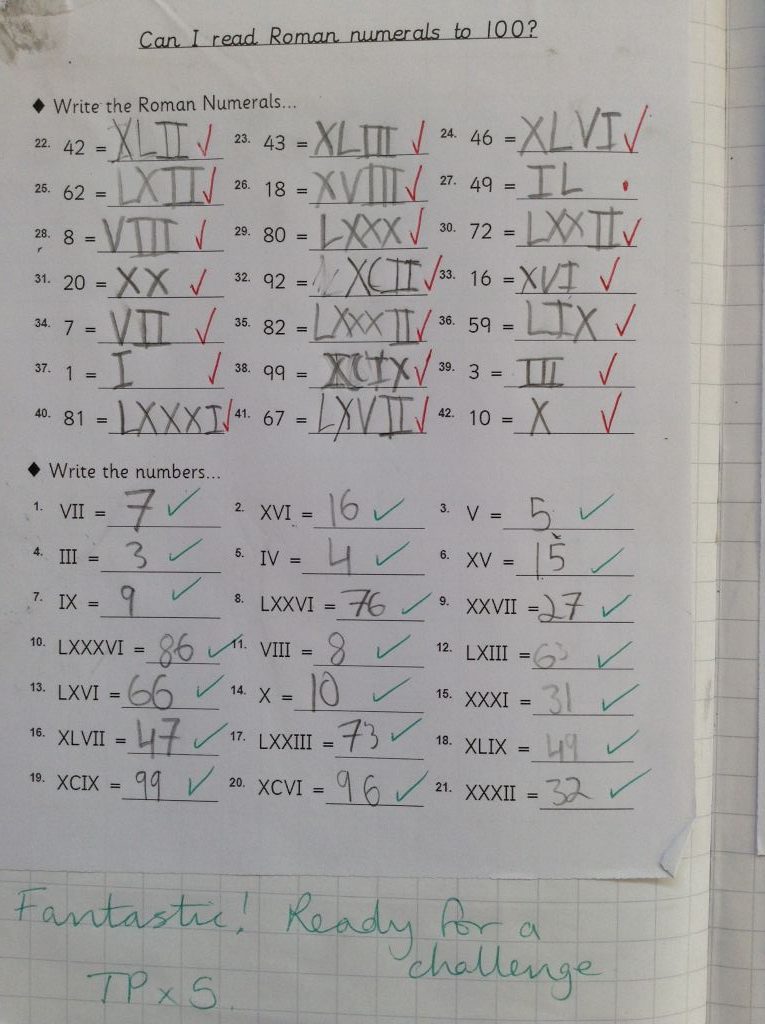 Can I read Roman numerals to 100?
♦ Write the Roman Numerals...
22. 42 = XLII ✓ 23. 43 = XLIII ✓ 24. 46 = XLVI ✓
25. 62 = LXII ✓ 26. 18 = XVIII ✓ 27. 49 = IL •
28. 8 = VIII ✓ 29. 80 = LXXX ✓ 30. 72 = LXXII ✓
31. 20 = XX ✓ 32. 92 = XCII ✓ 33. 16 = XVI ✓
34. 7 = VII ✓ 35. 82 = LXXXII ✓ 36. 59 = LIX ✓
37. 1 = I ✓ 38. 99 = XCIX ✓ 39. 3 = III ✓
40. 81 = LXXXI ✓ 41. 67 = LXVII ✓ 42. 10 = X ✓
♦ Write the numbers...
1. VII = 7 ✓ 2. XVI = 16 ✓ 3. V = 5 ✓
4. III = 3 ✓ 5. IV = 4 ✓ 6. XV = 15 ✓
7. IX = 9 ✓ 8. LXXVI = 76 ✓ 9. XXVII = 27 ✓
10. LXXXVI = 86 ✓ 11. VIII = 8 ✓ 12. LXIII = 63 ✓
13. LXVI = 66 ✓ 14. X = 10 ✓ 15. XXXI = 31 ✓
16. XLVII = 47 ✓ 17. LXXIII = 73 ✓ 18. XLIX = 49 ✓
19. XCIX = 99 ✓ 20. XCVI = 96 ✓ 21. XXXII = 32 ✓
Fantastic! Ready for a
challenge
TP x 5.